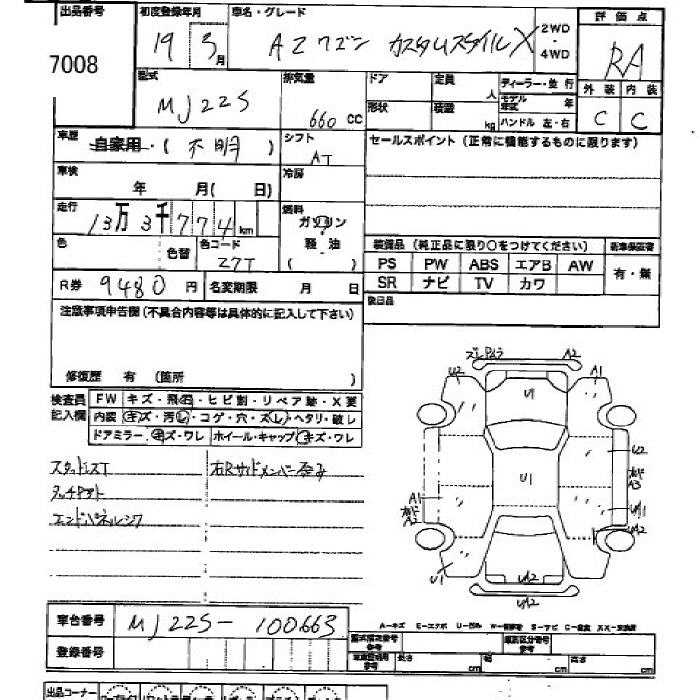 出品番号 初度登録年月 車名・グレード 評価点
7008 19 3月 AZワゴン カスタムスタイルX 2WD・4WD RA
型式 排気量 ドア 定員 人 ディーラー・並行 外装 内装
MJ22S 660cc 形状 積載 kg モデル年式 年 C C
ハンドル 左・右
車歴 自家用・(不明) シフト AT セールスポイント(正常に機能するものに限ります)
車検 年 月( 日) 冷房
走行 13万3千774km 燃料 ガソリン 軽油 ( )
色 色替 色コード Z7T 装備品(純正品に限り○をつけてください) 新車保証書
PS PW ABS エアB AW 有・無
R券 9480円 名変期限 月 日 SR ナビ TV カワ
注意事項申告欄(不具合内容等は具体的に記入して下さい) 後日品
修復歴 有(箇所 )
検査員記入欄 FW キズ・飛石・ヒビ割・リペア跡・X要
内装 キズ・汚レ・コゲ・穴・スレ・ヘタリ・破レ
ドアミラー キズ・ワレ ホイール・キャップ キズ・ワレ
スタッドレスT 右Rサイドメンバー歪み
タッチアップ
エンドパネルシワ
A2
U2 A1
U1
U2
U1
A3
A1
A2
U1 UA2
UA2
車台番号 MJ22S-100663
A-キズ E-エクボ U-凹ミ W-補修跡 S-サビ C-腐食 XX-交換済
登録番号 型式指定番号 参考 類別区分番号 参考
長さ cm 幅 cm 高さ cm
出品コーナー